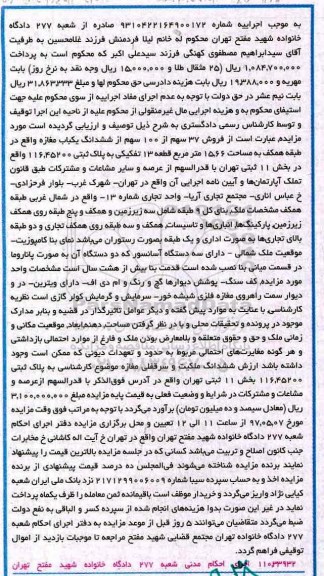 به موجب اجراییه شماره ۹۳۱۰۴۲۲۱۶۴۹۰۰۱۷۲ صادره از شعبه ۲۷۷ دادگاه
خانواده شهید مفتح تهران محکوم له خانم لیلا فردمنش فرزند غلامحسین به طرفیت
آقای سیدابراهیم مصطفوی کهنگی فرزند سیدعلی اکبر که محکوم است به پرداخت
۱,۰۸۴,۷۰۰,۰۰۰ ریال (۲۵ مثقال طلا و ۱۵,۰۰۰,۰۰۰ ریال وجه نقد به نرخ روز) بابت
مهریه و ۱۹,۳۸۸,۰۰۰ ریال بابت هزینه دادرسی حق محکوم لها و مبلغ ۳۱,۸۶۳,۳۳۳ ریال
بابت نیم عشر در حق دولت با توجه به عدم اجرای مفاد اجراییه از سوی محکوم علیه جهت
استیفای محکوم به و هزینه اجرایی مال غیرمنقولی از محکوم علیه از ناحیه این اجرا توقیف
و توسط کارشناس رسمی دادگستری به شرح ذیل توصیف و ارزیابی گردیده است مورد
مزایده عبارت است از فروش ۳۷ سهم از ۱۰۰ سهم از ششدانگ یکباب مغازه واقع در
طبقه همکف به مساحت ۱۵.۶۶ متر مربع قطعه ۱۳ تفکیکی به پلاک ثبتی ۱۱۶.۴۵۲۰۰ واقع
در بخش ۱۱ ثبتی تهران با قدرالسهم از عرصه و سایر مشاعات و مشترکات طبق قانون
تملک آپارتمان‌ها و آیین نامه اجرایی آن واقع در تهران- شهرک غرب- بلوار فرحزادی-
خ عباس اناری- مجتمع تجاری آریا- واحد تجاری شماره ۱۳- واقع در شمال غربی طبقه
همکف مشخصات ملک بنای کل ۹ طبقه شامل سه زیرزمین و همکف و پنج طبقه روی همکف
زیرزمین پارکینگ‌ها، انباری‌ها و تاسیسات، همکف و سه طبقه روی همکف تجاری و دو طبقه
بالای تجاری‌ها به صورت اداری و یک طبقه بصورت رستوران می‌باشد نمای بنا کامپوزیت-
موقعیت ملک شمالی - دارای سه دستگاه آسانسور که دو دستگاه آن به صورت پاناروما
در قسمت میانی بنا نصب شده است قدمت بنا بیش از هشت سال است مشخصات واحد
مورد مزایده کف سنگ- پوشش دیوارها گچ و رنگ و ام دی اف- دارای ویترین- در و
دیوار سمت راهروی مغازه فلزی شیشه خور- سرمایش و گرمایش کولر گازی است نظریه
کارشناسی با عنایت به موارد پیش گفته و دیگر عوامل تاثیرگذار در قضیه و بنابر مدارک
موجود در پرونده و تحقیقات محلی و با در نظر گرفتن مساحت، دهنه، ابعاد، موقعیت مکانی و
زمانی ملک و حق و حقوق متعلقه و بلامعارض بودن ملک و فارغ از موارد احتمالی بازداشتی
و هر گونه مغایرت‌های احتمالی مربوط به حدود و تعهدات دیونی که ممکن است وجود
داشته باشد ارزش ششدانگ ملکیت و سرقفلی مغازه موضوع کارشناسی به پلاک ثبتی
۱۱۶.۴۵۲۰۰ بخش ۱۱ ثبتی تهران واقع در آدرس فوق‌الذکر با قدرالسهم از عرصه و
مشاعات و مشترکات در شرایط و وضعیت فعلی به قیمت پایه مزایده مبلغ ۳,۱۰۰,۰۰۰,۰۰۰
ریال (معادل سیصد و ده میلیون تومان) برآورد می‌گردد با توجه به مراتب فوق وقت مزایده
مورخ ۹۷,۰۵,۰۷ از ساعت ۱۱ الی ۱۲ تعیین و محل برگزاری مزایده دفتر اجرای احکام
شعبه ۲۷۷ دادگاه خانواده شهید مفتح تهران واقع در تهران خ آیت اله کاشانی خ مخابرات
جنب کانون اصلاح و تربیت می‌باشد کسانی که در جلسه مزایده بالاترین قیمت را پیشنهاد
نمایند برنده مزایده شناخته می‌شوند فی‌المجلس ده درصد قیمت پیشنهادی از برنده
مزایده اخذ و به حساب سپرده سیبا شماره ۲۱۷۱۲۹۹۰۰۶۰۰۹ نزد بانک ملی ایران شعبه
کیایی نژاد واریز می‌گردد و خریدار موظف است باقیمانده ثمن معامله را ظرف یکماه پرداخت
نماید در غیر این صورت بدوا هزینه‌های انجام شده از سپرده کسر و الباقی به نفع دولت
ضبط می‌گردد متقاضیان می‌توانند ۵ روز قبل از موعد مزایده به دفتر اجرای احکام شعبه
۲۷۷ دادگاه خانواده تهران مجتمع قضایی شهید مفتح مراجعه تا موجبات بازدید از اموال
توقیفی فراهم گردد.
۱۱۰۲۳۹۳۲ احکام مدنی شعبه ۲۷۷ دادگاه خانواده شهید مفتح تهران